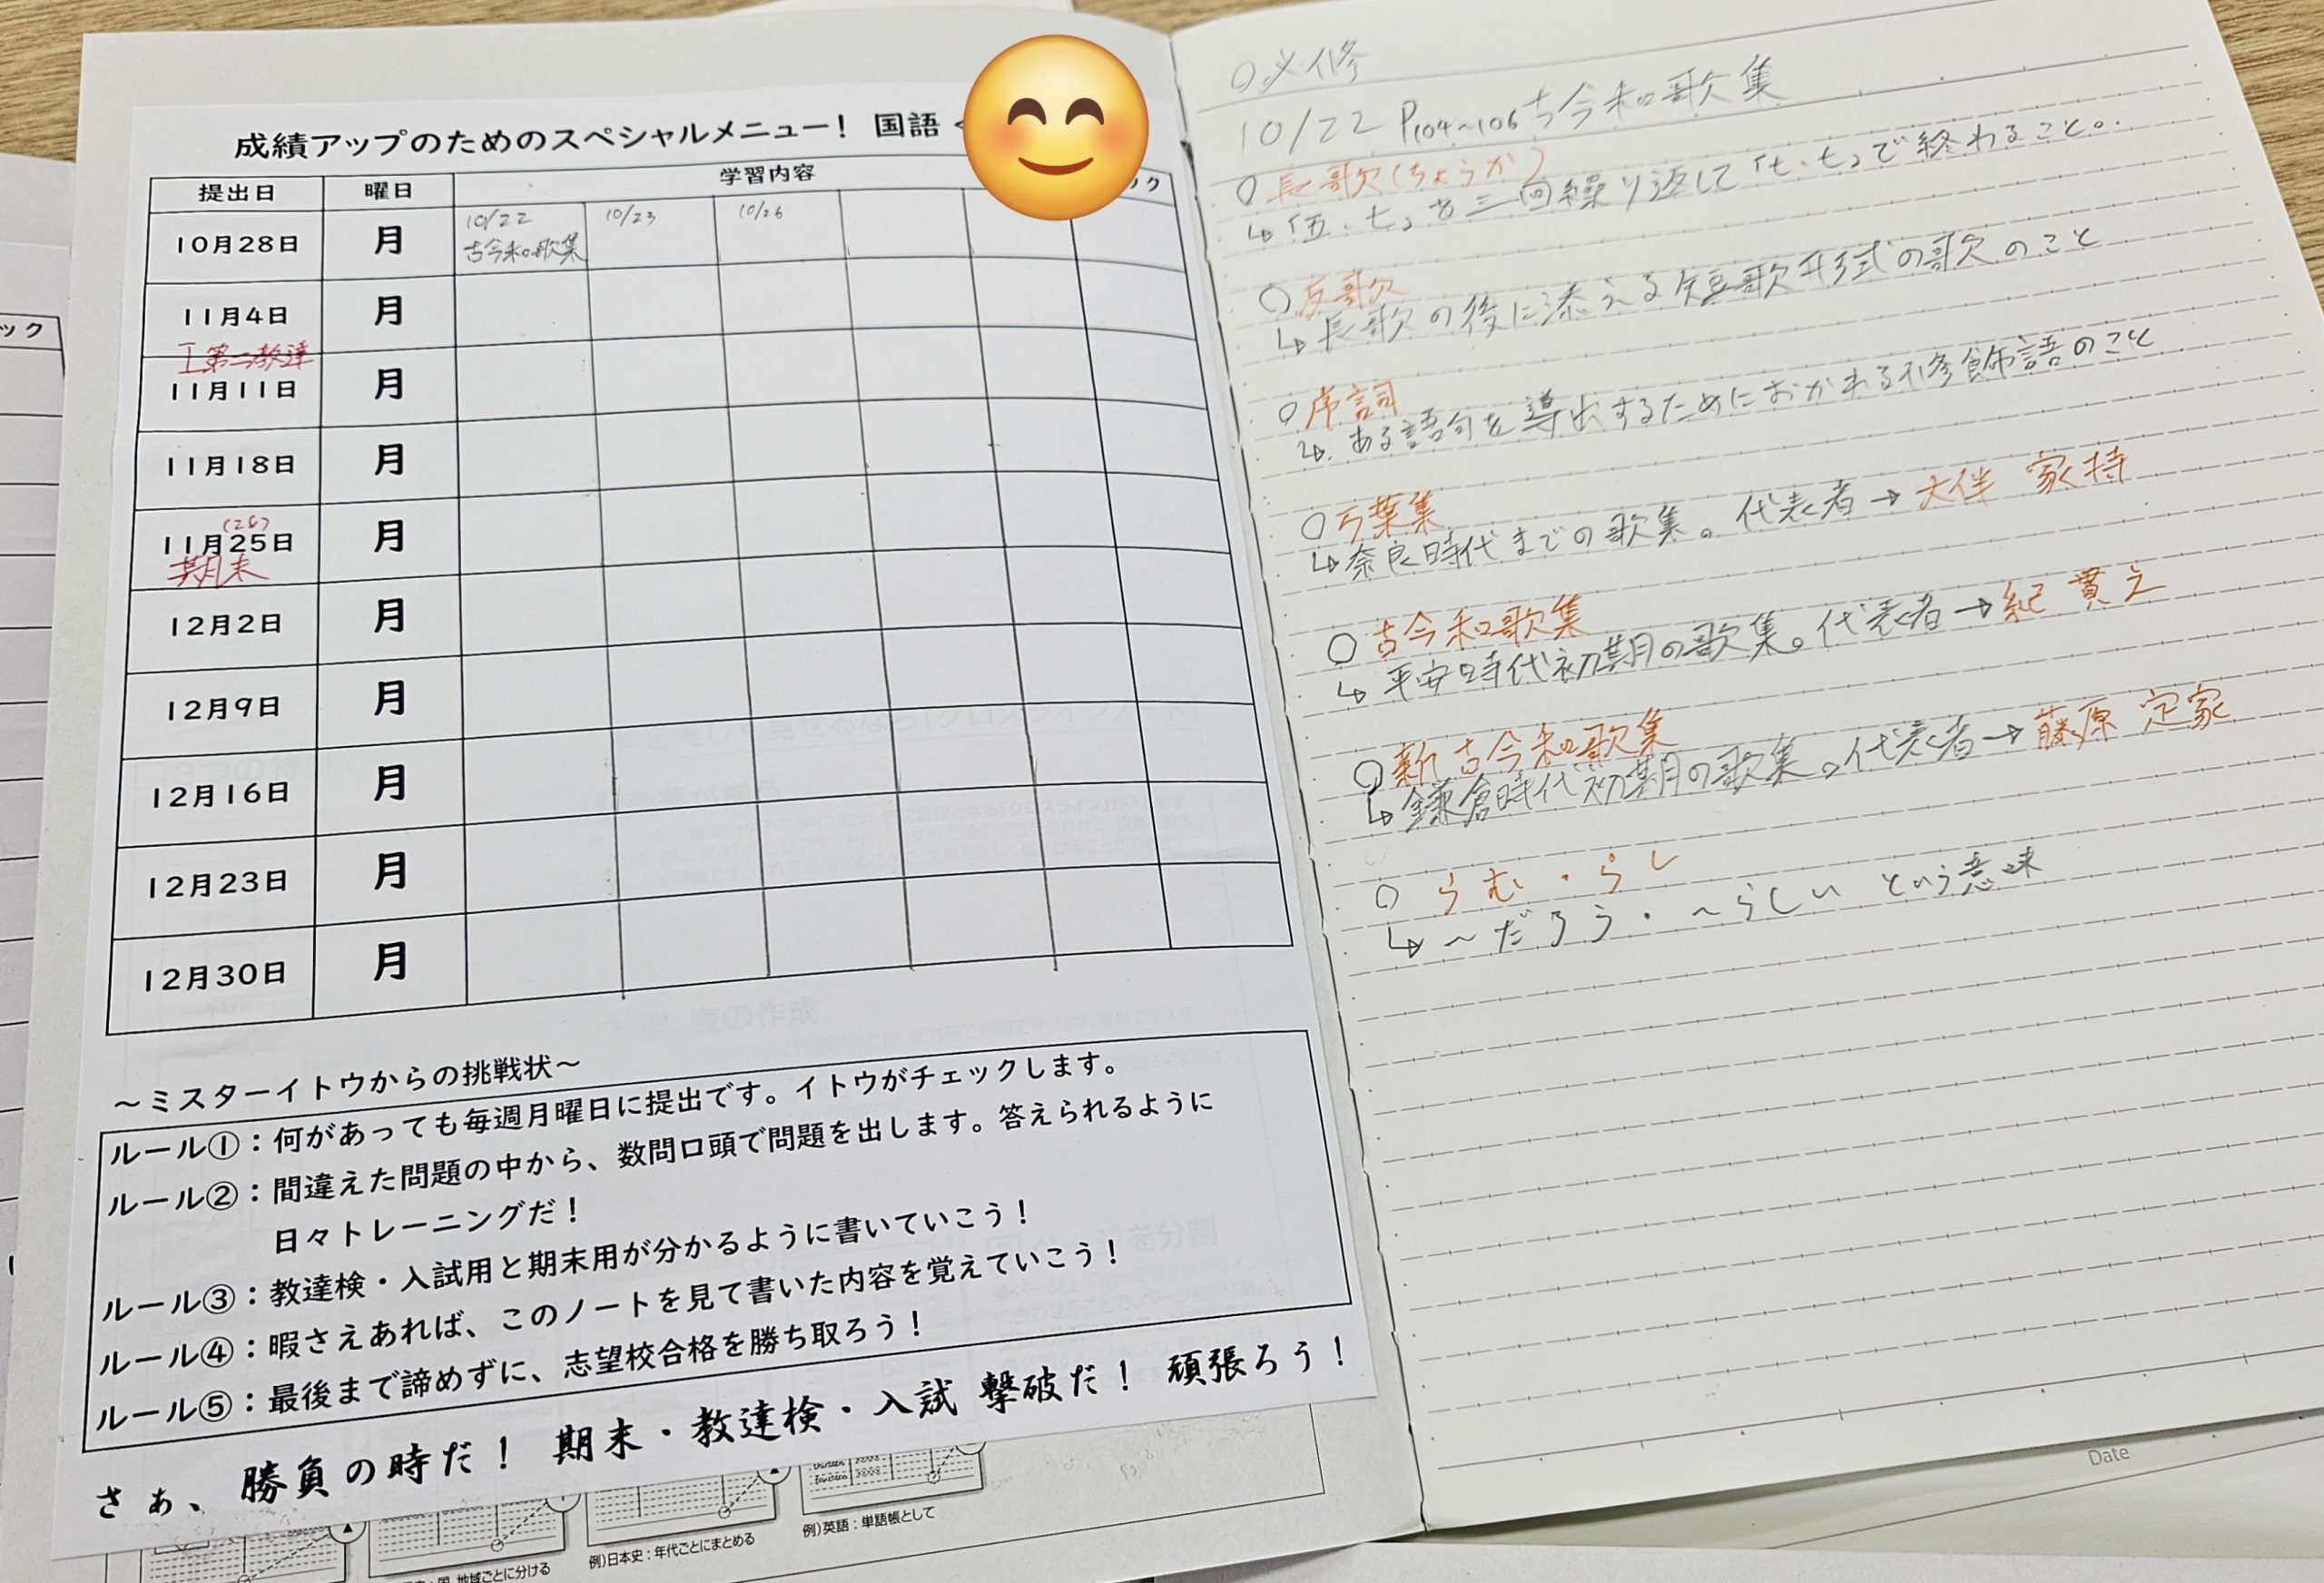 成績アップのためのスペシャルメニュー！ 国語
提出日 曜日 学習内容 ック
10月28日 月 10/22 10/23 10/26
古今和歌集
11月4日 月
11月11日 月
11月18日 月
(26)
11月25日 月
期末
12月2日 月
12月9日 月
12月16日 月
12月23日 月
12月30日 月
～ミスターイトウからの挑戦状～
ルール①：何があっても毎週月曜日に提出です。イトウがチェックします。
ルール②：間違えた問題の中から、数問口頭で問題を出します。答えられるように
日々トレーニングだ！
ルール③：教達検・入試用と期末用が分かるように書いていこう！
ルール④：暇さえあれば、このノートを見て書いた内容を覚えていこう！
ルール⑤：最後まで諦めずに、志望校合格を勝ち取ろう！
さぁ、勝負の時だ！ 期末・教達検・入試 撃破だ！ 頑張ろう！
地域ごとに分ける
例)日本史：年代ごとにまとめる
例)英語：単語帳として
ック
○必修
10/22 P104~106 古今和歌集
○長歌(ちょうか)
↳「五・七」を三回繰り返して「七・七」で終わること。
○反歌
↳長歌の後に添える短歌形式の歌のこと
○序詞
↳ある語句を導出するためにおかれる修飾語のこと
○万葉集
↳奈良時代までの歌集。代表者→大伴 家持
○古今和歌集
↳平安時代初期の歌集。代表者→紀 貫之
○新古今和歌集
↳鎌倉時代初期の歌集。代表者→藤原 定家
○らむ・らし
↳～だろう・～らしい という意味
Date